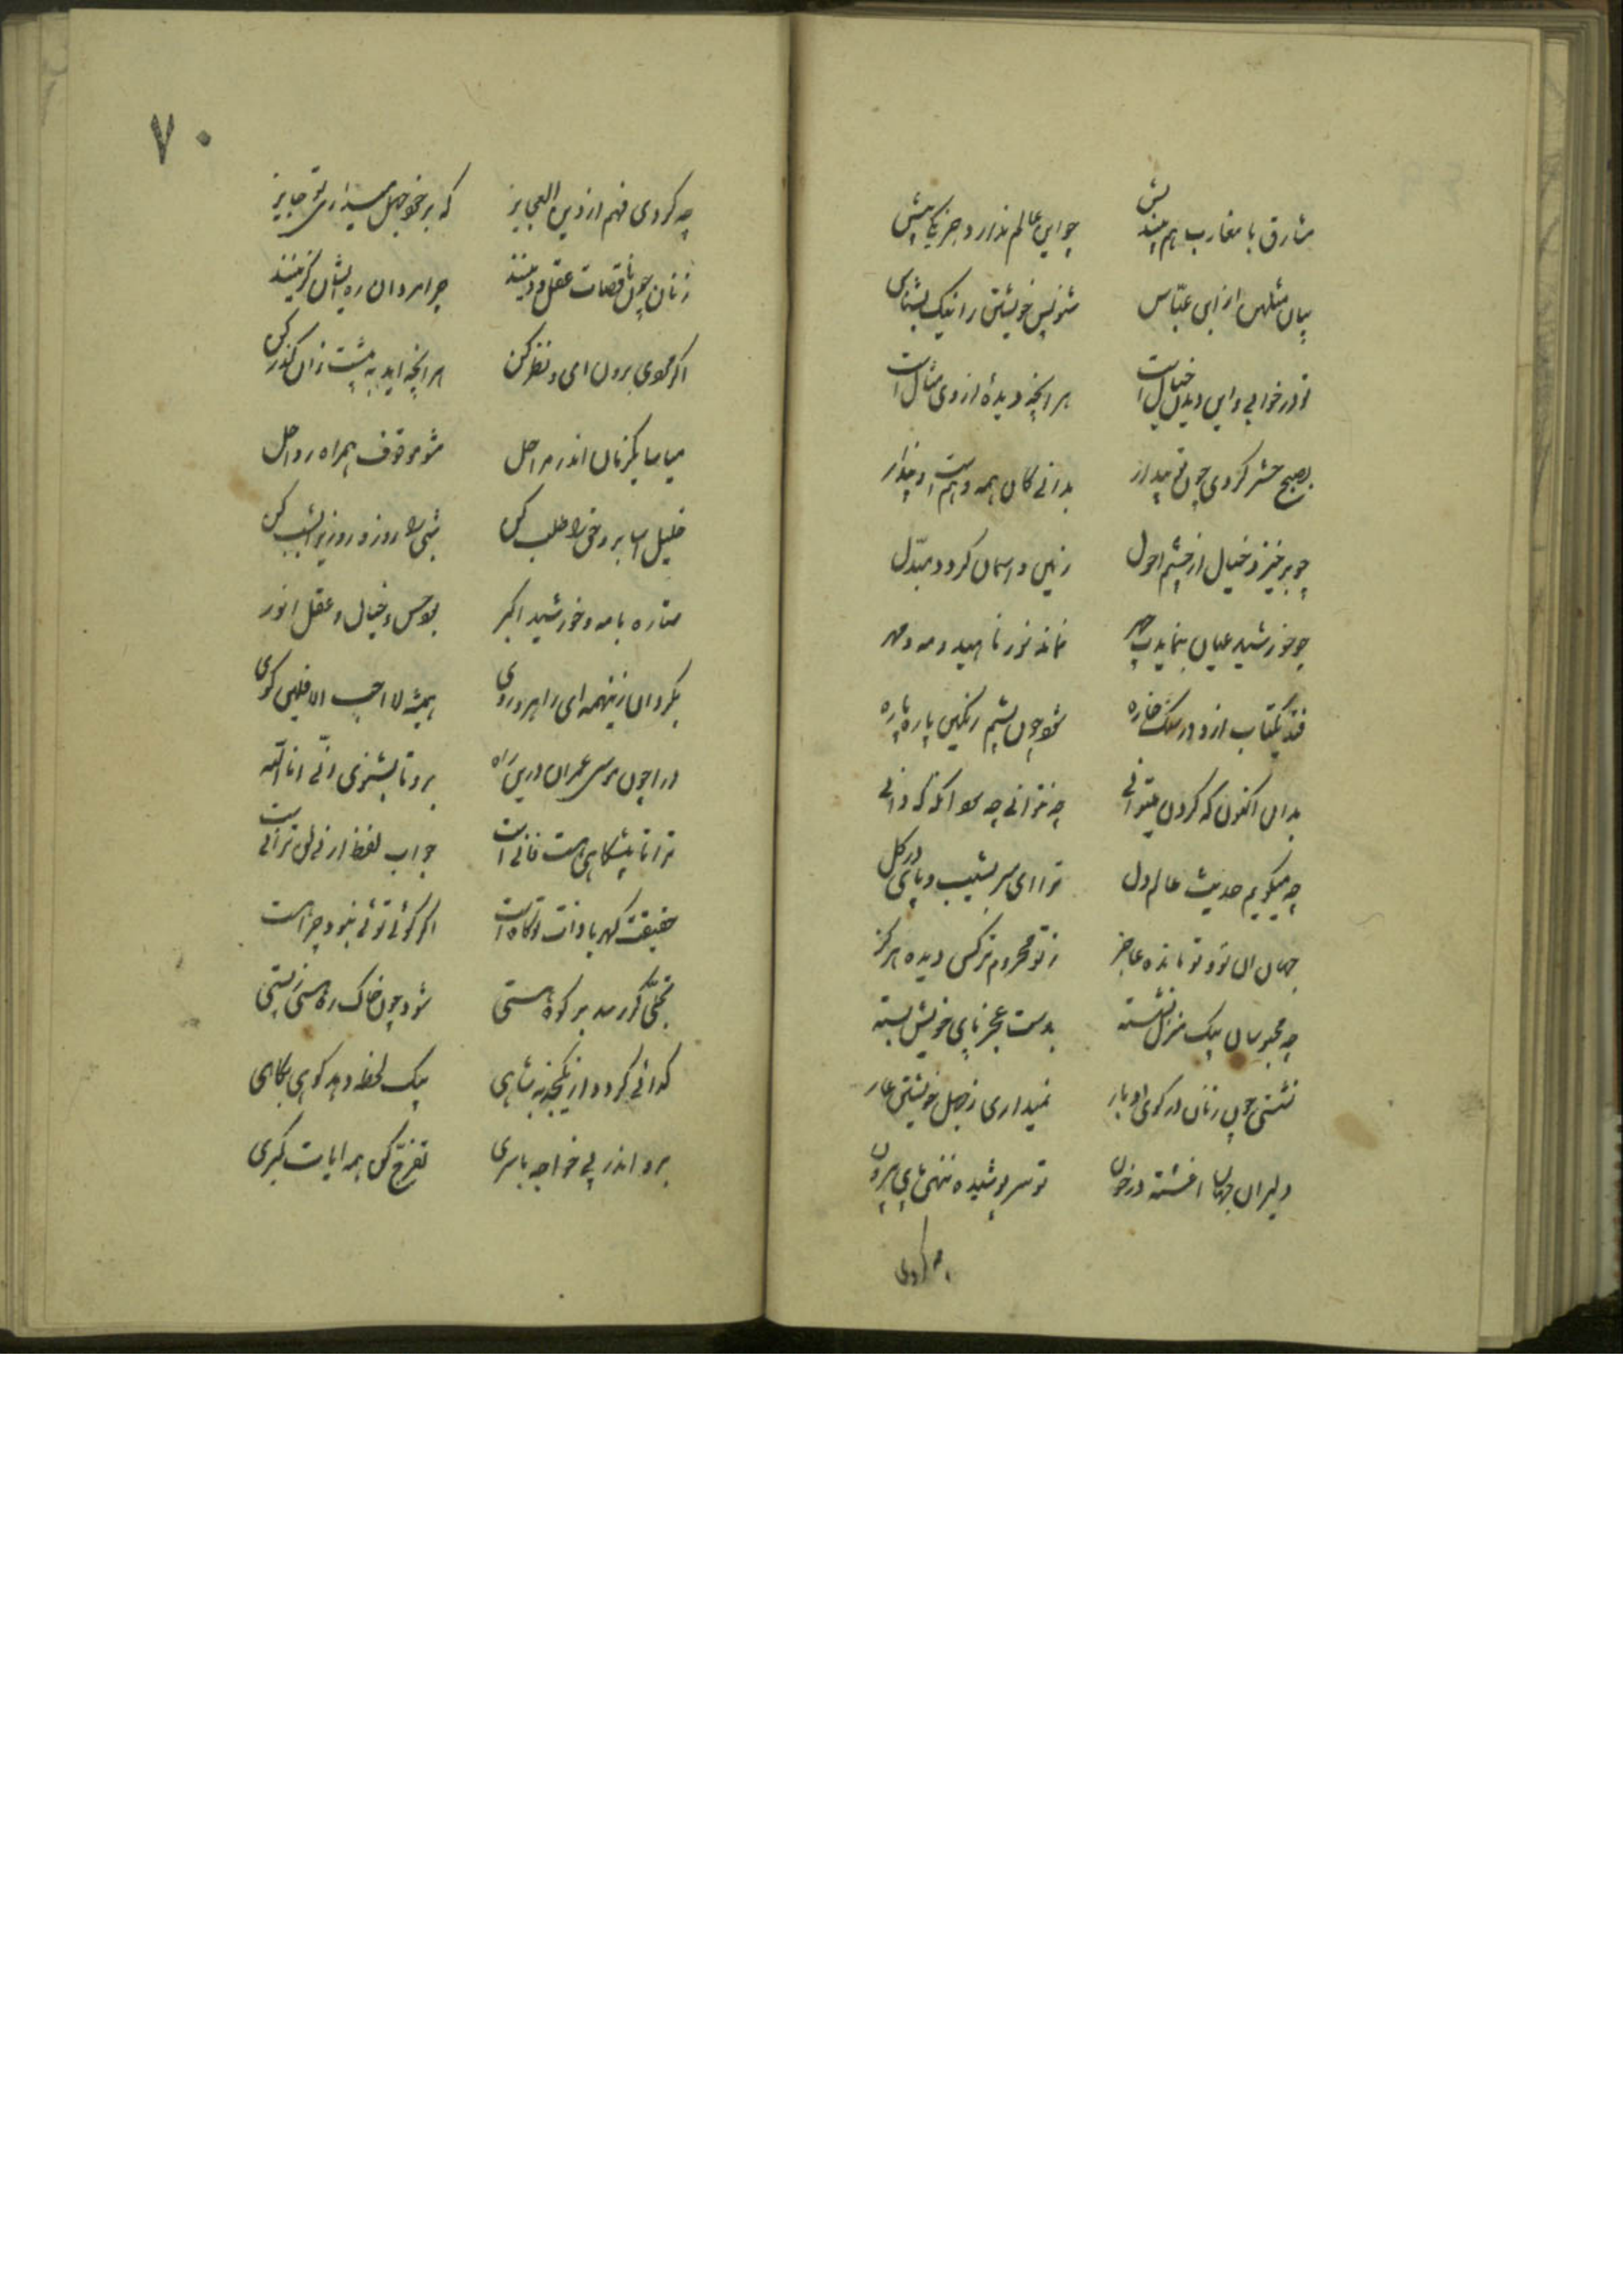 مشارق با مغارب هم بیندیش چو این عالم ندارد جز یکی پیش
بیان مثلهن از ابن عباس شنو پس خویشتن را نیک بشناس
تو در خوابی و این دیدن خیال است هر آنچه دیدهٔ از وی مثال است
بصبح حشر کردی چون تو بیدار بدانی کان همه وهم است و پندار
چو برخیزد خیال از چشم احول زمین و اسمان کردد مبدّل
چو خورشید عیان بنماید چهر نماند نور ناهید و مه و مهر
فتد یکتاب ازو در سنک خاره شود چون پشم رنکین پاره پاره
بدان اکنون که کردن میتوانی چو نتوانی چه سود آنکه که دانی
چه میکویم حدیث عالم دل ترا ای سر بشیب و پای در کل
جهان ان تو و تو مانده عاجز ز تو محروم‌تر کس دیده هرکز
چو محبوسان بیک منزل نشسته بدست عجز پای خویش بسته
نشستی چون زنان در کوی ادبار نمیداری ز جهل خویشتن عار
دلیران جهان اغشته در خون تو سر پوشیده ننهی پای بیرون
چه کردی
۷۰
چه کردی فهم از دین العجایز که بر خود جهل میداری تو جایز
زنان چون ناقصات عقل و دینند چرا مردان ره ایشان کزینند
اکر مردی برون ای و نظر کن هر آنچه اید به پیشت زان کذر کن
میاسا یکزمان اندر مراحل مشو موقوف همراه رواحل
خلیل اسا برو حق را طلب کن شبی را روز و روزی را بشب کن
ستاره با مه و خورشید اکبر بود حس و خیال و عقل انور
بکردان زینهمه ای راهرو روی همیشه لا احب الافلین کوی
درا چون موسی عمران درین راه برو تا بشنوی انّی انا الله
ترا تا پیشکاهی هست فانی است جواب لفظ ارنی لن ترانی است
حقیقت کهربا ذات تو کاه است اکر کوئی توئی نبود چه راهست
تجلّی کر رسد بر کوه هستی شود چون خاک ره هستی ز پستی
کدائی کردد از یکجذبه شاهی بیک لحظه دهد کوهی بکاهی
برو اندر پی خواجه باسری تفرّج کن همه ایات کبری